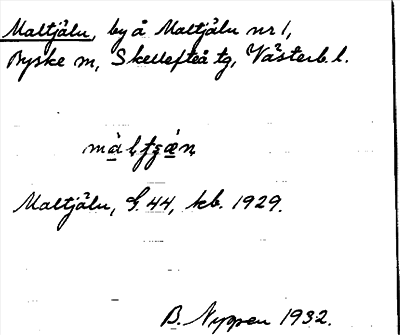 Maltjäln, by å Maltjäln nr 1,
Byske m, Skellefteå tg, Västerb. l.
Maltjäln, G. 44, kb. 1929.
B. Nyppen 1932.